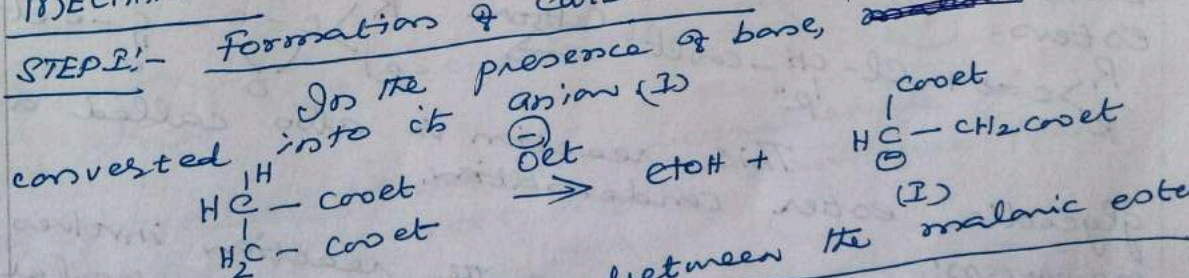 STEP I:- Formation of
In the presence of base,
converted into its anion (I)
H
HC - cooet
H2C - cooet
⊖
Oet
→ etoH +
cooet
HC - CH2 cooet
⊖
(I)
between the malonic este